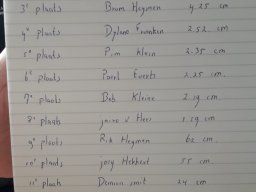 3e plaats Bram Heymen 4.25 cm
4e plaats Dylano Franken 2.52 cm
5e plaats Pim Klein 2.35 cm
6e plaats Paul Everts 2.25 cm.
7e plaats Bob Kleine 2.19 cm.
8e plaats 1.59 cm
9e plaats Rik Heymen 62 cm
10e plaats jory Hekkert 55 cm.
11e plaats Damian smit 24 cm